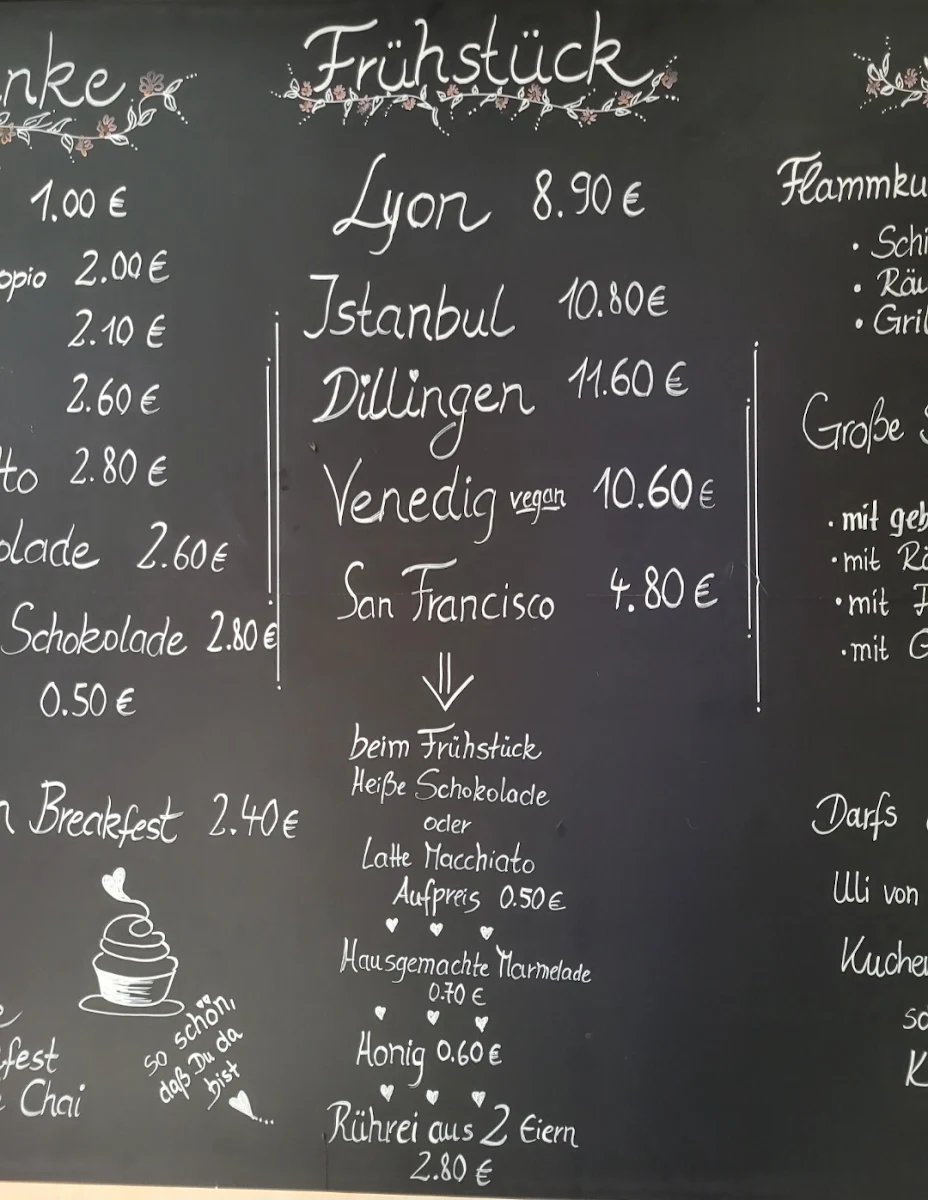 nke
1.00 €
opio 2.00 €
2.10 €
2.60 €
to 2.80 €
olade 2.60 €
Schokolade 2.80 €
0.50 €
n Breakfest 2.40 €
so schön,
daß Du da
bist
fest
Chai
Frühstück
Lyon 8.90 €
Istanbul 10.80 €
Dillingen 11.60 €
Venedig vegan 10.60 €
San Francisco 4.80 €
beim Frühstück
Heiße Schokolade
oder
Latte Macchiato
Aufpreis 0.50 €
Hausgemachte Marmelade
0.70 €
Honig 0.60 €
Rührei aus 2 Eiern
2.80 €
Flammku
• Schi
• Räu
• Gril
Große S
• mit geb
• mit Rä
• mit F
• mit G
Darfs
Uli von
Kuchen
so
K